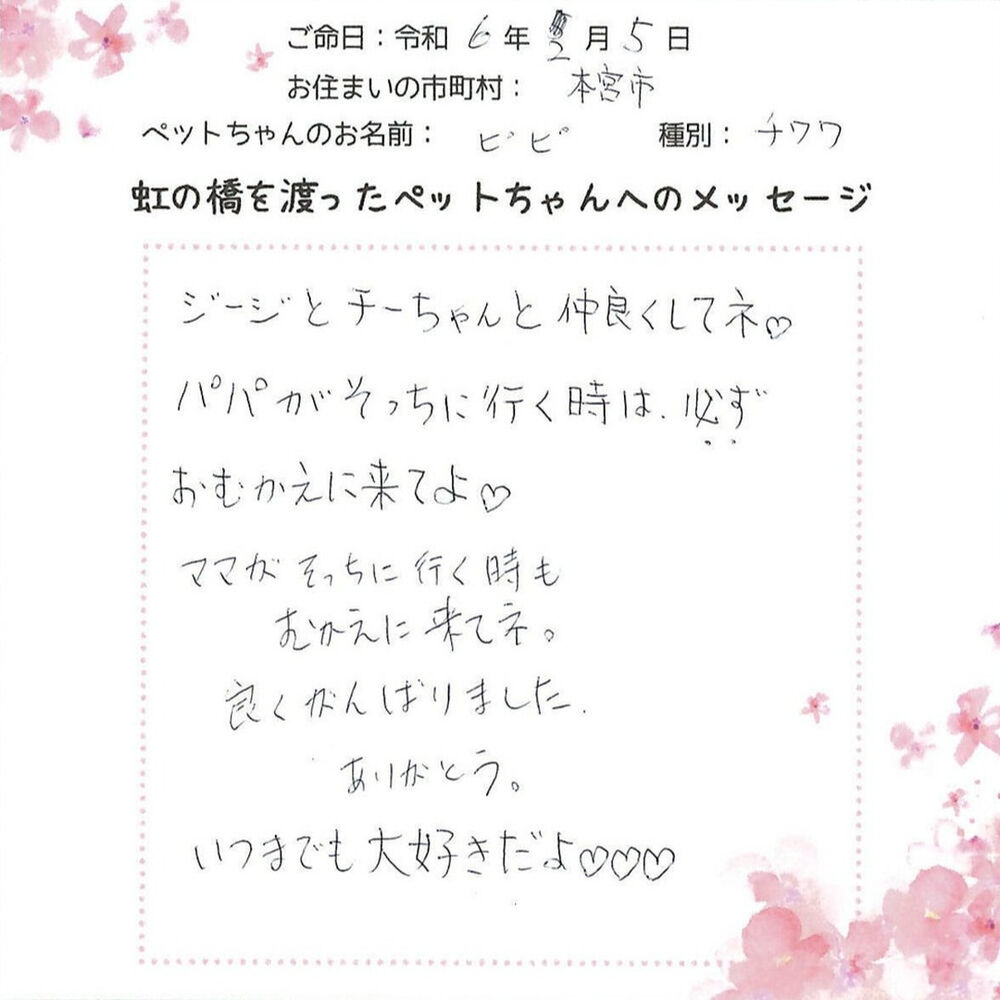 ご命日：令和 6 年 2 月 5 日
お住まいの市町村： 本宮市
ペットちゃんのお名前： ビビ 種別： チワワ
虹の橋を渡ったペットちゃんへのメッセージ
ジージとチーちゃんと仲良くしてネ♡
パパがそっちに行く時は、必ず
おむかえに来てよ♡
ママがそっちに行く時も
むかえに来てネ。
良くがんばりました.
ありがとう。
いつまでも大好きだよ♡♡♡